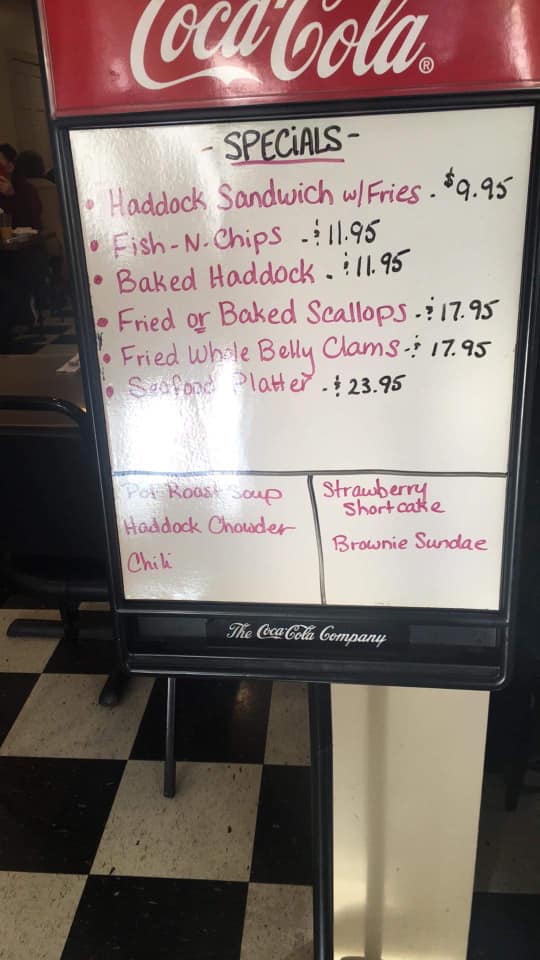 Coca-Cola®
- SPECiALS -
• Haddock Sandwich w/Fries - $9.95
• Fish-N-Chips - $11.95
• Baked Haddock - $11.95
• Fried or Baked Scallops - $17.95
• Fried Whole Belly Clams - $17.95
• Seafood Platter - $23.95
Pot Roast Soup
Haddock Chowder
Chili
Strawberry
Shortcake
Brownie Sundae
The Coca-Cola Company